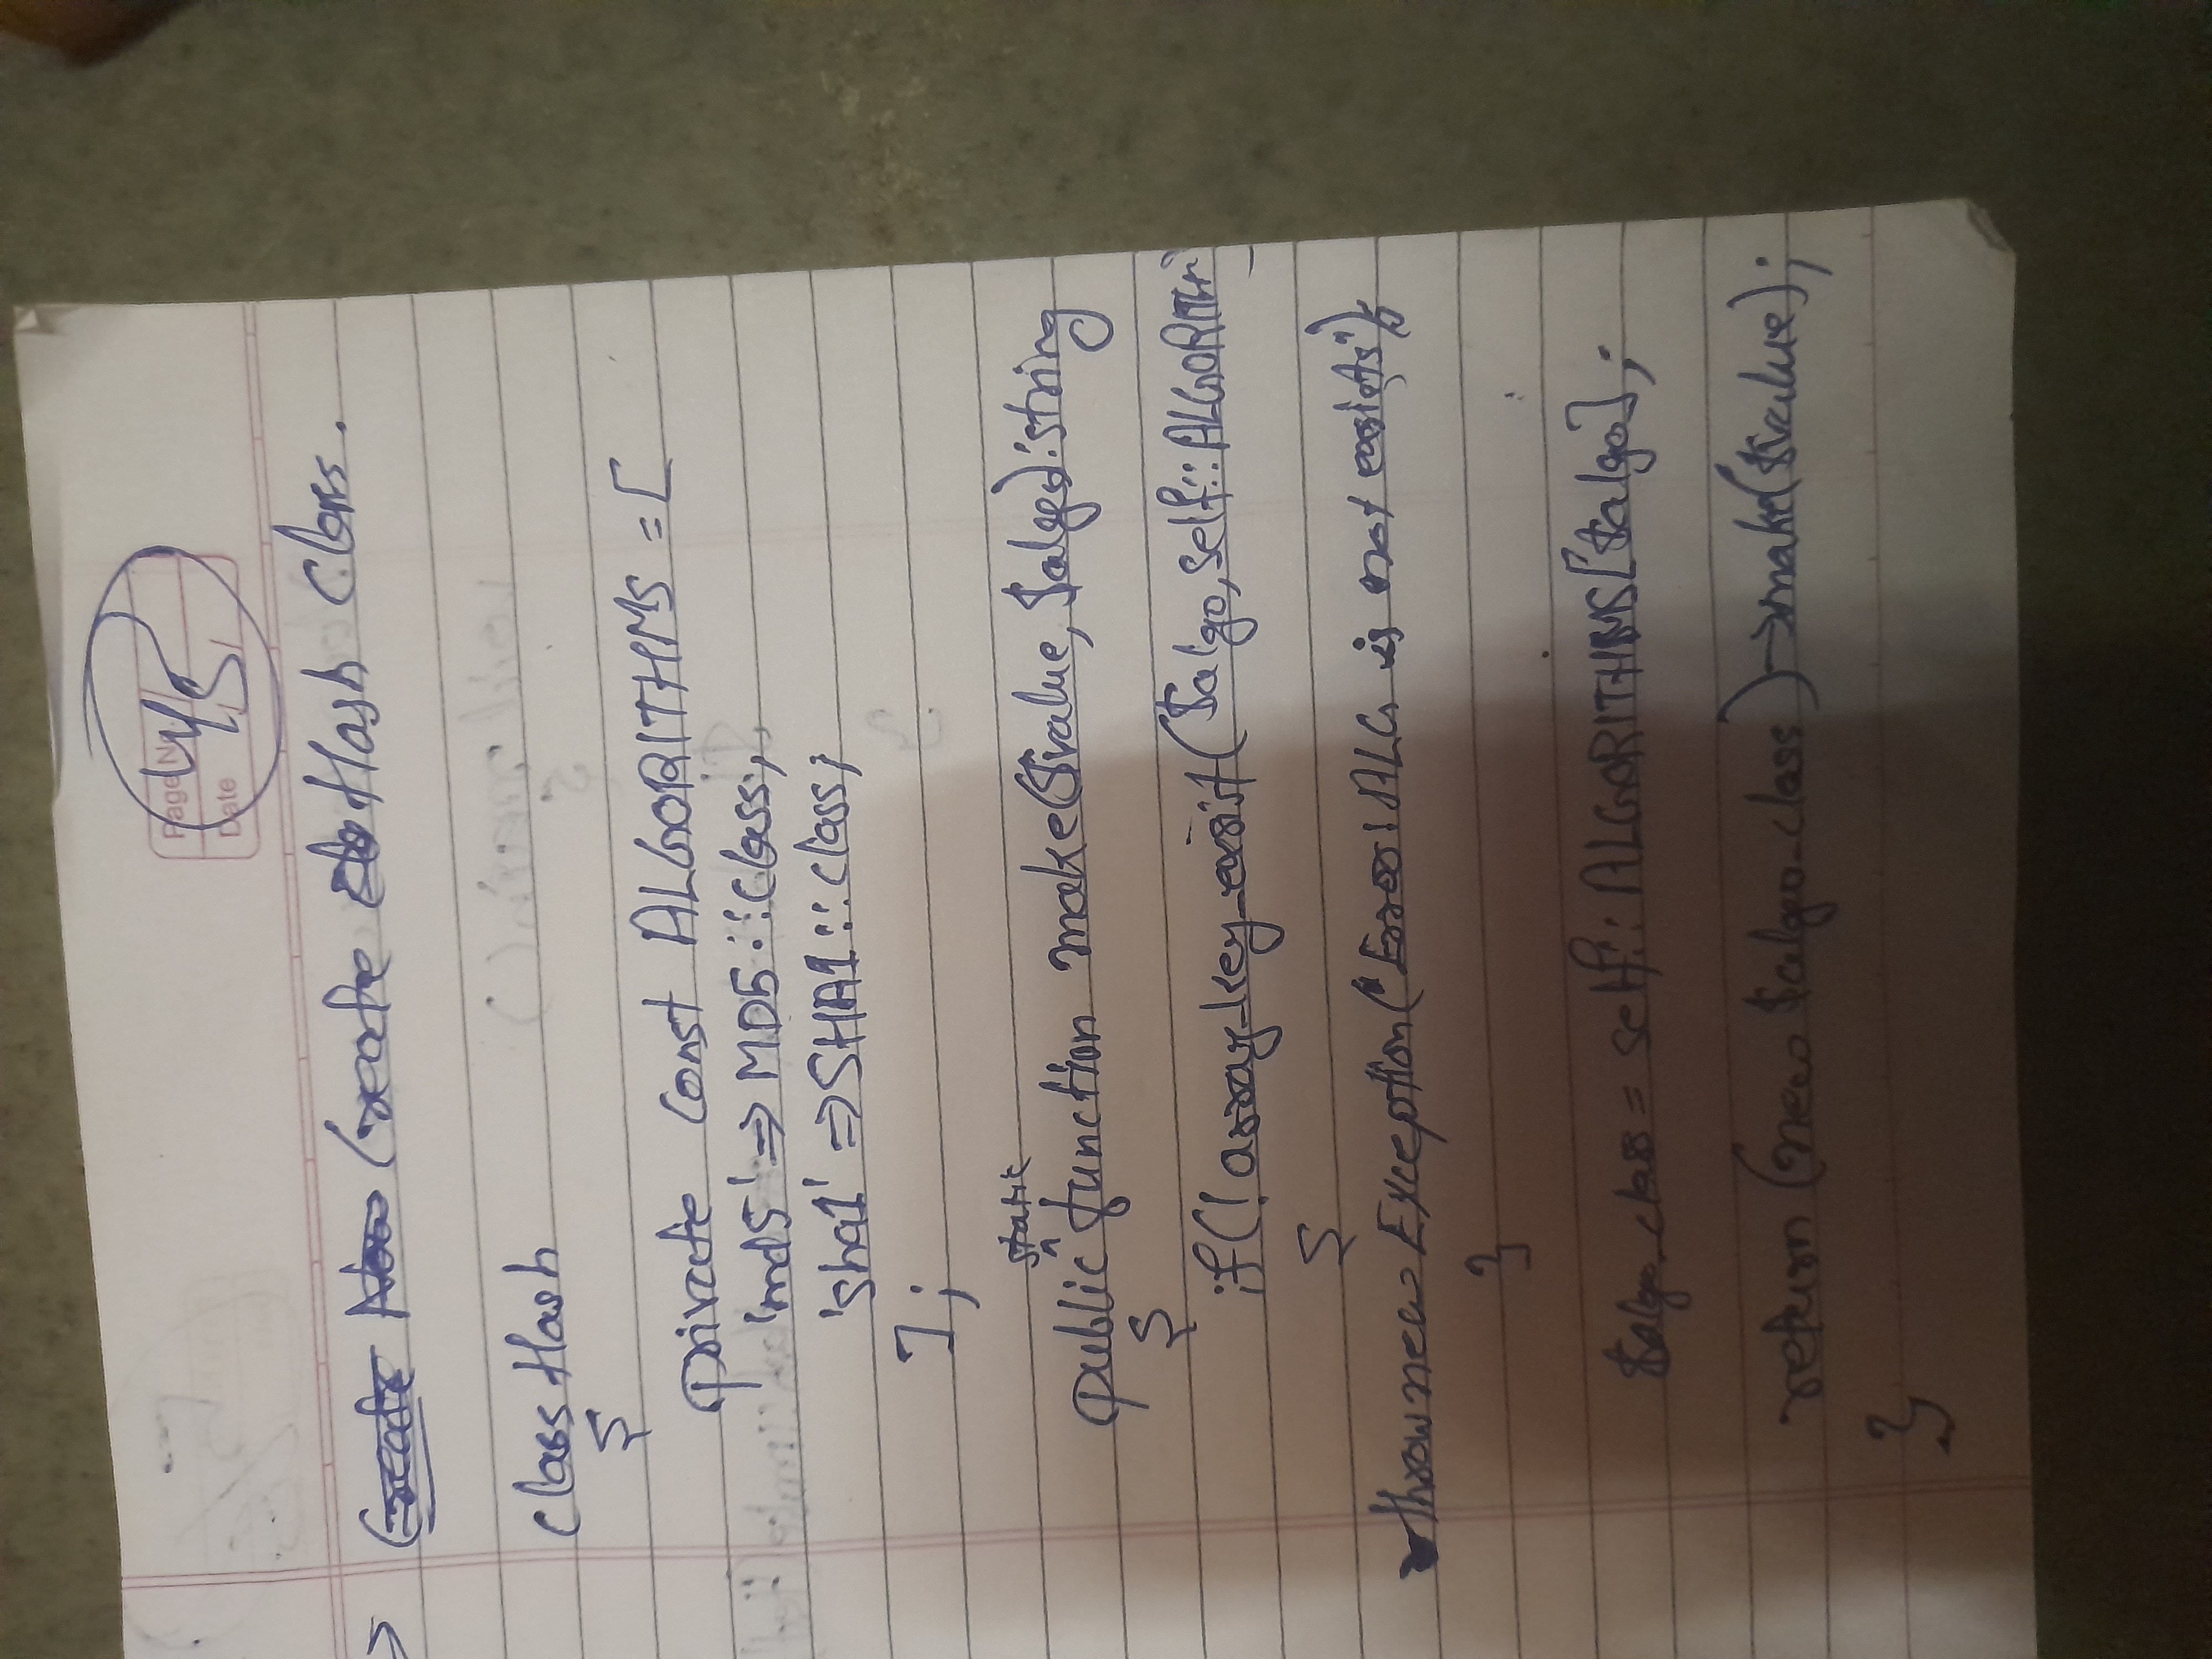 Page No.
Date
4/5
→ Create Now Create Hash Class.
class Hash
{
private const ALGORITHMS = [
'md5' => MD5::class,
'sha1' => SHA1::class,
];
static
public ^ function make($value, $algo):string
{
if(! array_key_exist($algo, self::ALGORITHM
{
throw new Exception("Error! ALG is not exists");
}
$algo_class = self:: ALGORITHMS[$algo];
return (new $algo_class)->make($value);
}